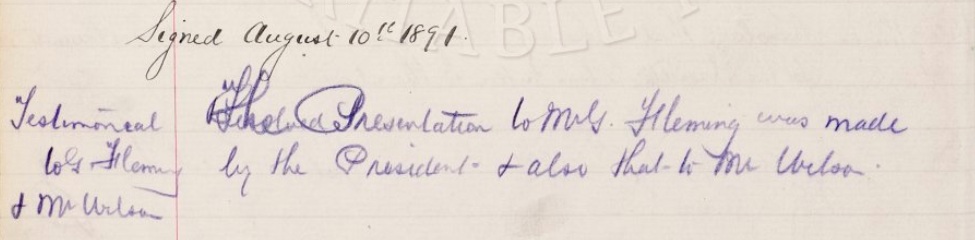 Signed August 10th 1891.
Testimonial
to G Fleming
& Mr Wilson
The Presentation to Mr G. Fleming was made
by the President & also that to Mr Wilson.
ABLE